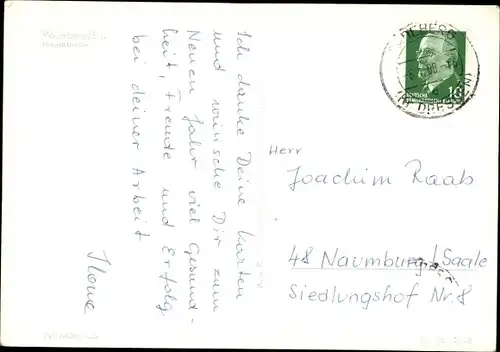 Ich danke Deine Karten
und wünsche Dir zum
Neuen Jahr viel Gesund-
heit, Freude und Erfolg
bei deiner Arbeit
Ilona
10
DEUTSCHE
DEMOKRATISCHE REPUBLIK
Herr
Joachim Raab
48 Naumburg/Saale
Siedlungshof Nr. 8